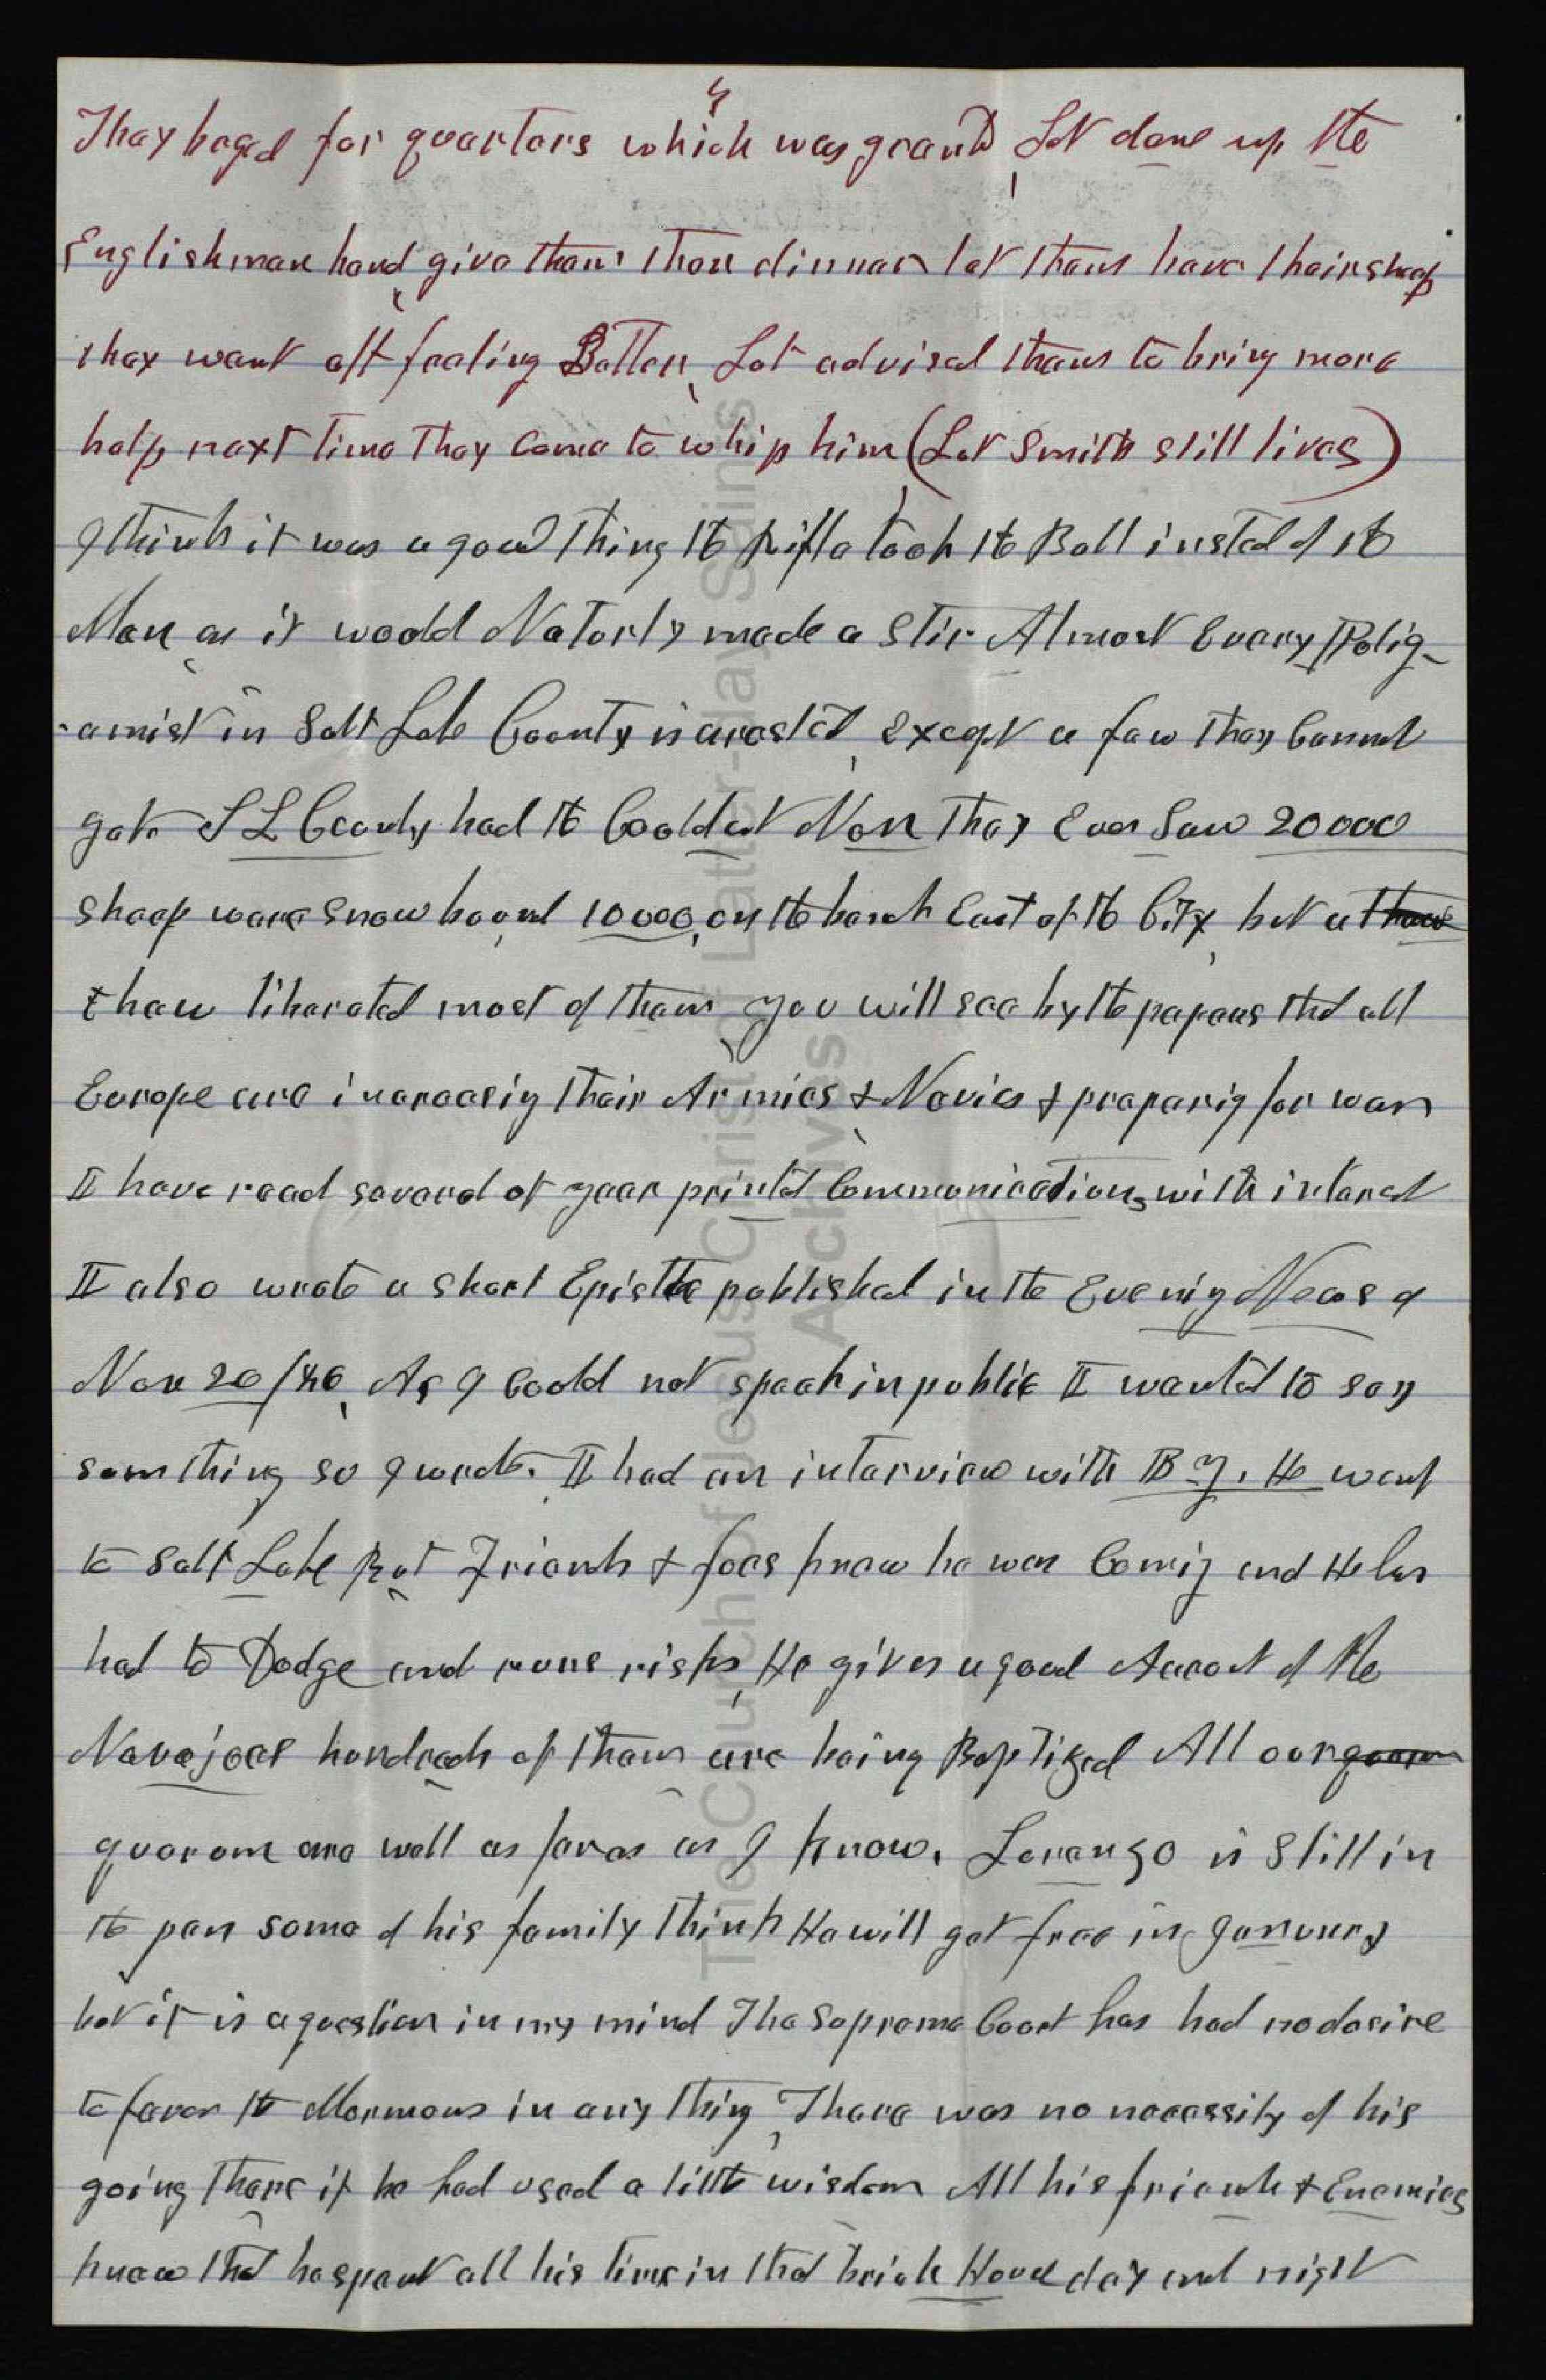 4
They beged for quarters which was grantd, Lot done up the
Englishman hand, give them thare dinner let them have thair sheep
they went off feeling Better, Lot advised thems to bring more
help next time They Come to whip him (Lot Smith still lives)
I think it was a good thing the Rifle took the Ball insted of the
Man as it would Naturly made a Stir Almost Every Polig-
-amist in Salt Lake County is arested, except a few they Cannot
get S L County had the Coldest Nov They Ever Saw 20000
Sheep ware Snow bound 10000, on the bench East of the City, but a thaw
thaw liberated most of them, you will see by the papers that all
Europe are increasig thair Armies & Navies & preparig for war
I have read several of your printd Communications with interest
I also wrote a short Epistle published in the Evenig News of
Nov 20/86, As I Could not speak in public I wantd to say
som thing so I wrote. I had an interview with B Y. He went
to Salt Lake But Friends & foes knew he was Comig and He has
had to Dodge and runs risks, He gives a good Accont of the
Navajoes hundreds of them are being Baptized All our quoram
quorum are well as far as as I know. Lorenzo is Still in
the pen some of his family think He will get free in January
but it is a question in my mind The Supreme Court has had no desire
to favor the Mormons in any thing, There was no necessity of his
going there if he had used a little wisdom All his friends & Enemies
knew that he spent all his time in that brick House day and night
The Church of Jesus Christ of Latter-day Saints
Archives